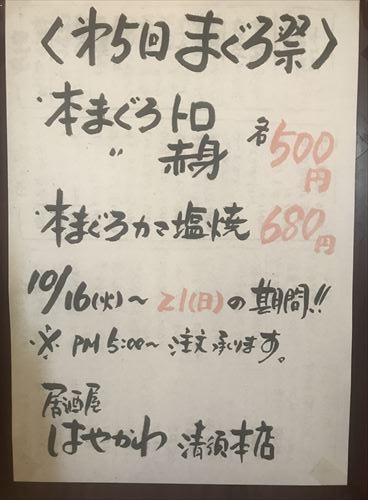 〈第5回まぐろ祭〉
・本まぐろトロ
〃 赤身 各500円
・本まぐろカマ塩焼 680円
10/16(火)〜21(日)の期間!!
※ PM 5:00〜 注文承ります。
居酒屋
はやかわ 清須本店